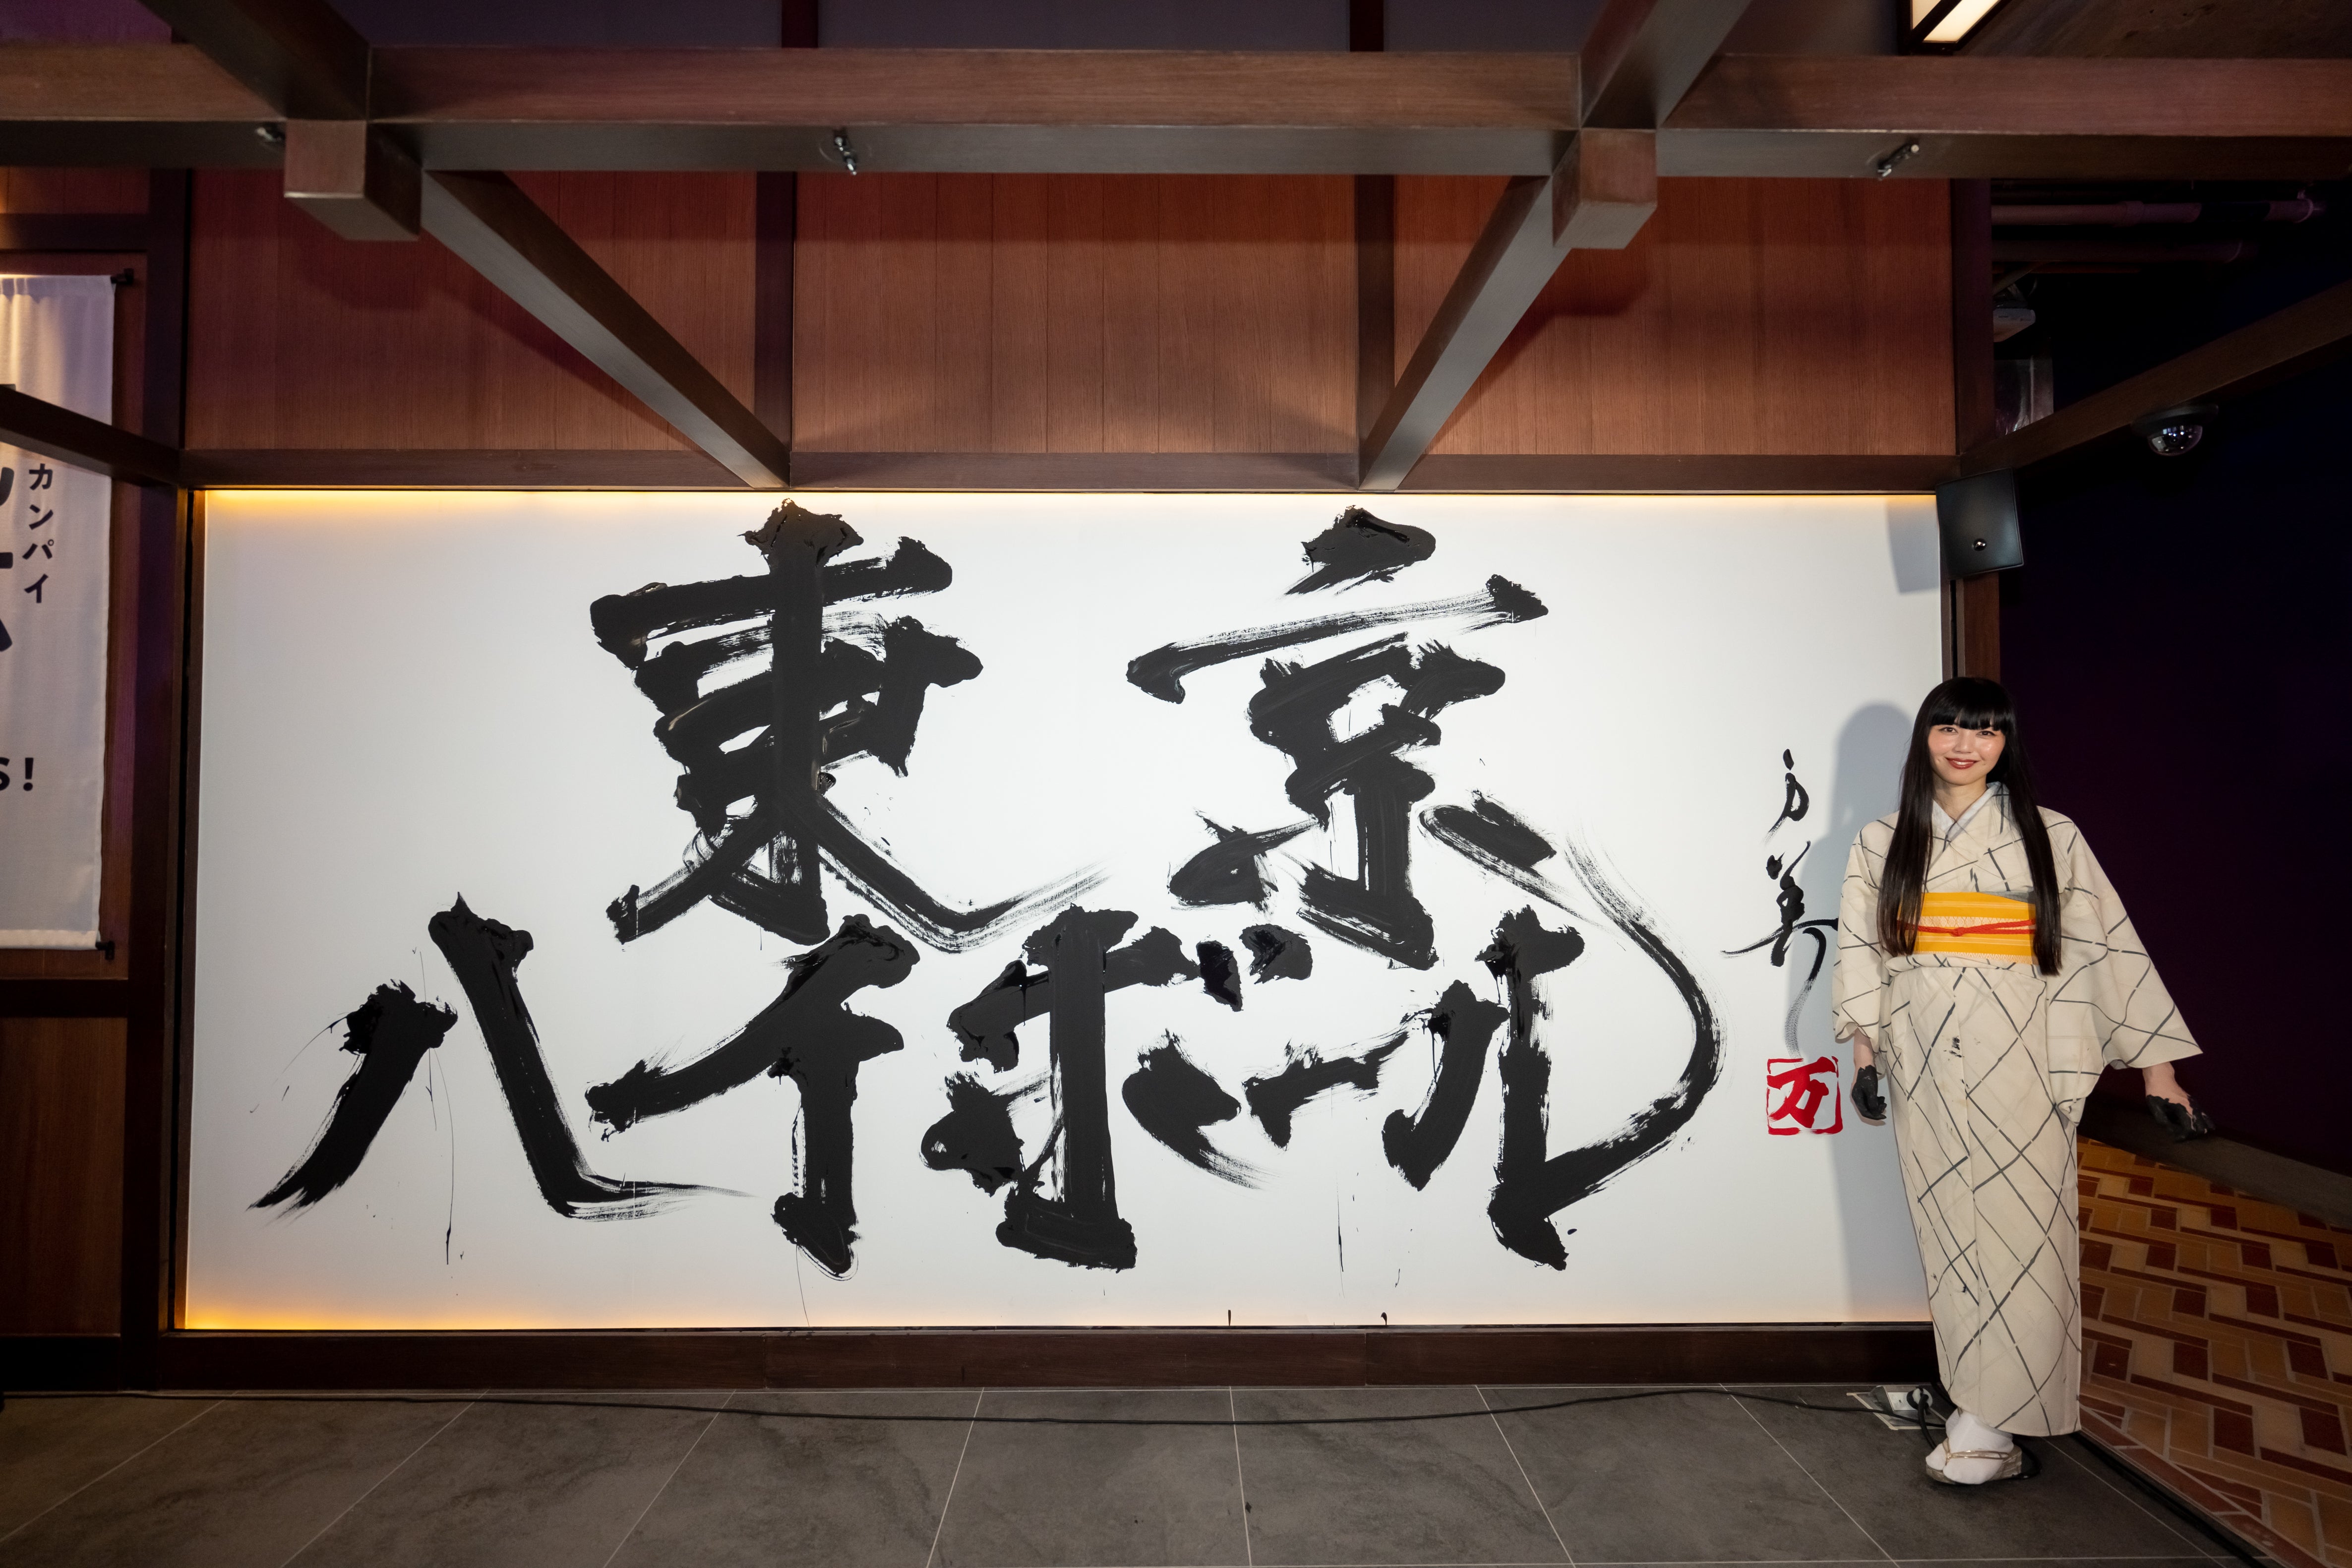 カンパイ
S!
東京
ハイボール
万美
万